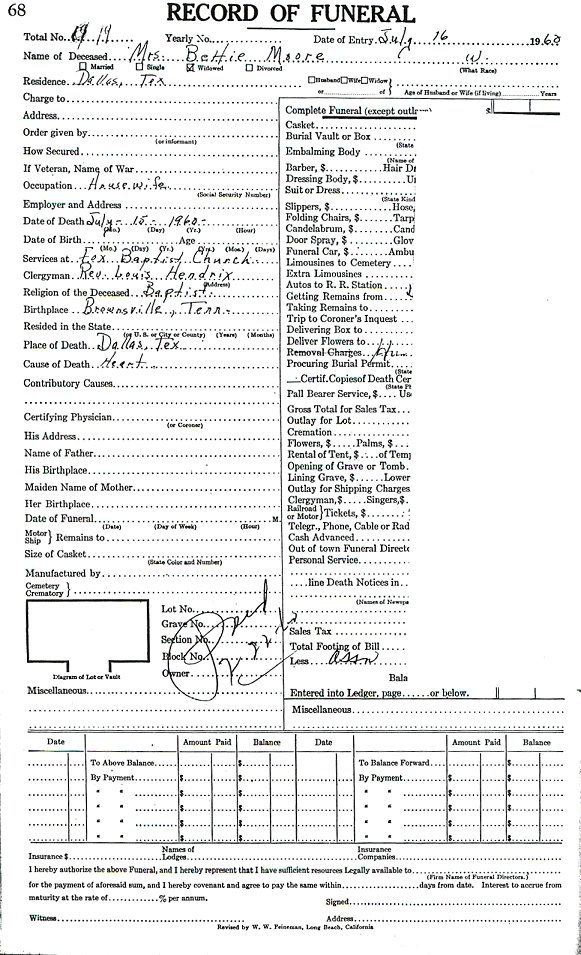 68
RECORD OF FUNERAL
Total No. 19 Yearly No. Date of Entry July 16 1960
Name of Deceased Mrs. Bettie Moore W.
Married Single Widowed Divorced (What Race)
Residence Dallas, Tex Husband Wife Widow
or of Age of Husband or Wife (if living) Years
Charge to
Address
Order given by
(or informant)
How Secured
If Veteran, Name of War
Occupation Housewife
(Social Security Number)
Employer and Address
Date of Death July - 15 - 1960 -
(Mo.) (Day) (Yr.) (Hour)
Date of Birth Age
(Mo.) (Day) (Yr.) (Yrs.) (Mos.) (Days)
Services at Fox Baptist Church
Clergyman Rev. Louis Hendrix
(Address)
Religion of the Deceased Baptist
Birthplace Brownsville, Tenn.
Resided in the State
(or U. S. or City or County) (Years) (Months)
Place of Death Dallas, Tex
Cause of Death Heart
Contributory Causes
Certifying Physician
(or Coroner)
His Address
Name of Father
His Birthplace
Maiden Name of Mother
Her Birthplace
Date of Funeral M.
(Date) (Day of Week) (Hour)
Motor Ship Remains to
Size of Casket
(State Color and Number)
Manufactured by
Cemetery Crematory
Lot No.
Grave No.
Section No.
Block No.
Owner
Diagram of Lot or Vault
Miscellaneous
Complete Funeral (except outl $
Casket
Burial Vault or Box
(State
Embalming Body
(Name of
Barber, $ Hair Dr
Dressing Body, $ U
Suit or Dress
(State Kind
Slippers, $ Hose,
Folding Chairs, $ Tarp
Candelabrum, $ Cand
Door Spray, $ Glov
Funeral Car, $ Ambu
Limousines to Cemetery
Extra Limousines
Autos to R. R. Station
Getting Remains from
Taking Remains to
Trip to Coroner's Inquest
Delivering Box to
Deliver Flowers to
Removal Charges
Procuring Burial Permit
(State
Certif. Copies of Death Cer
(State Pl
Pall Bearer Service, $ Us
Gross Total for Sales Tax
Outlay for Lot
Cremation
Flowers, $ Palms, $
Rental of Tent, $ of Temp
Opening of Grave or Tomb
Lining Grave, $ Lower
Outlay for Shipping Charges
Clergyman, $ Singers, $
Railroad or Motor Tickets, $
Telegr., Phone, Cable or Rad
Cash Advanced
Out of town Funeral Directo
Personal Service
line Death Notices in
(Names of Newspa
Sales Tax
Total Footing of Bill
Less Assn
Bala
Entered into Ledger, page or below.
Miscellaneous
Date Amount Paid Balance Date Amount Paid Balance
To Above Balance $ To Balance Forward $
By Payment $ $ By Payment $ $
" " $ $ " " $ $
" " $ $ " " $ $
" " $ $ " " $ $
" " $ $ " " $ $
Insurance $ Names of Lodges Insurance Companies
I hereby authorize the above Funeral, and I hereby represent that I have sufficient resources Legally available to
(Firm Name of Funeral Directors.)
for the payment of aforesaid sum, and I hereby covenant and agree to pay the same within days from date. Interest to accrue from
maturity at the rate of % per annum. Signed
Witness Address
Revised by W. W. Feineman, Long Beach, California